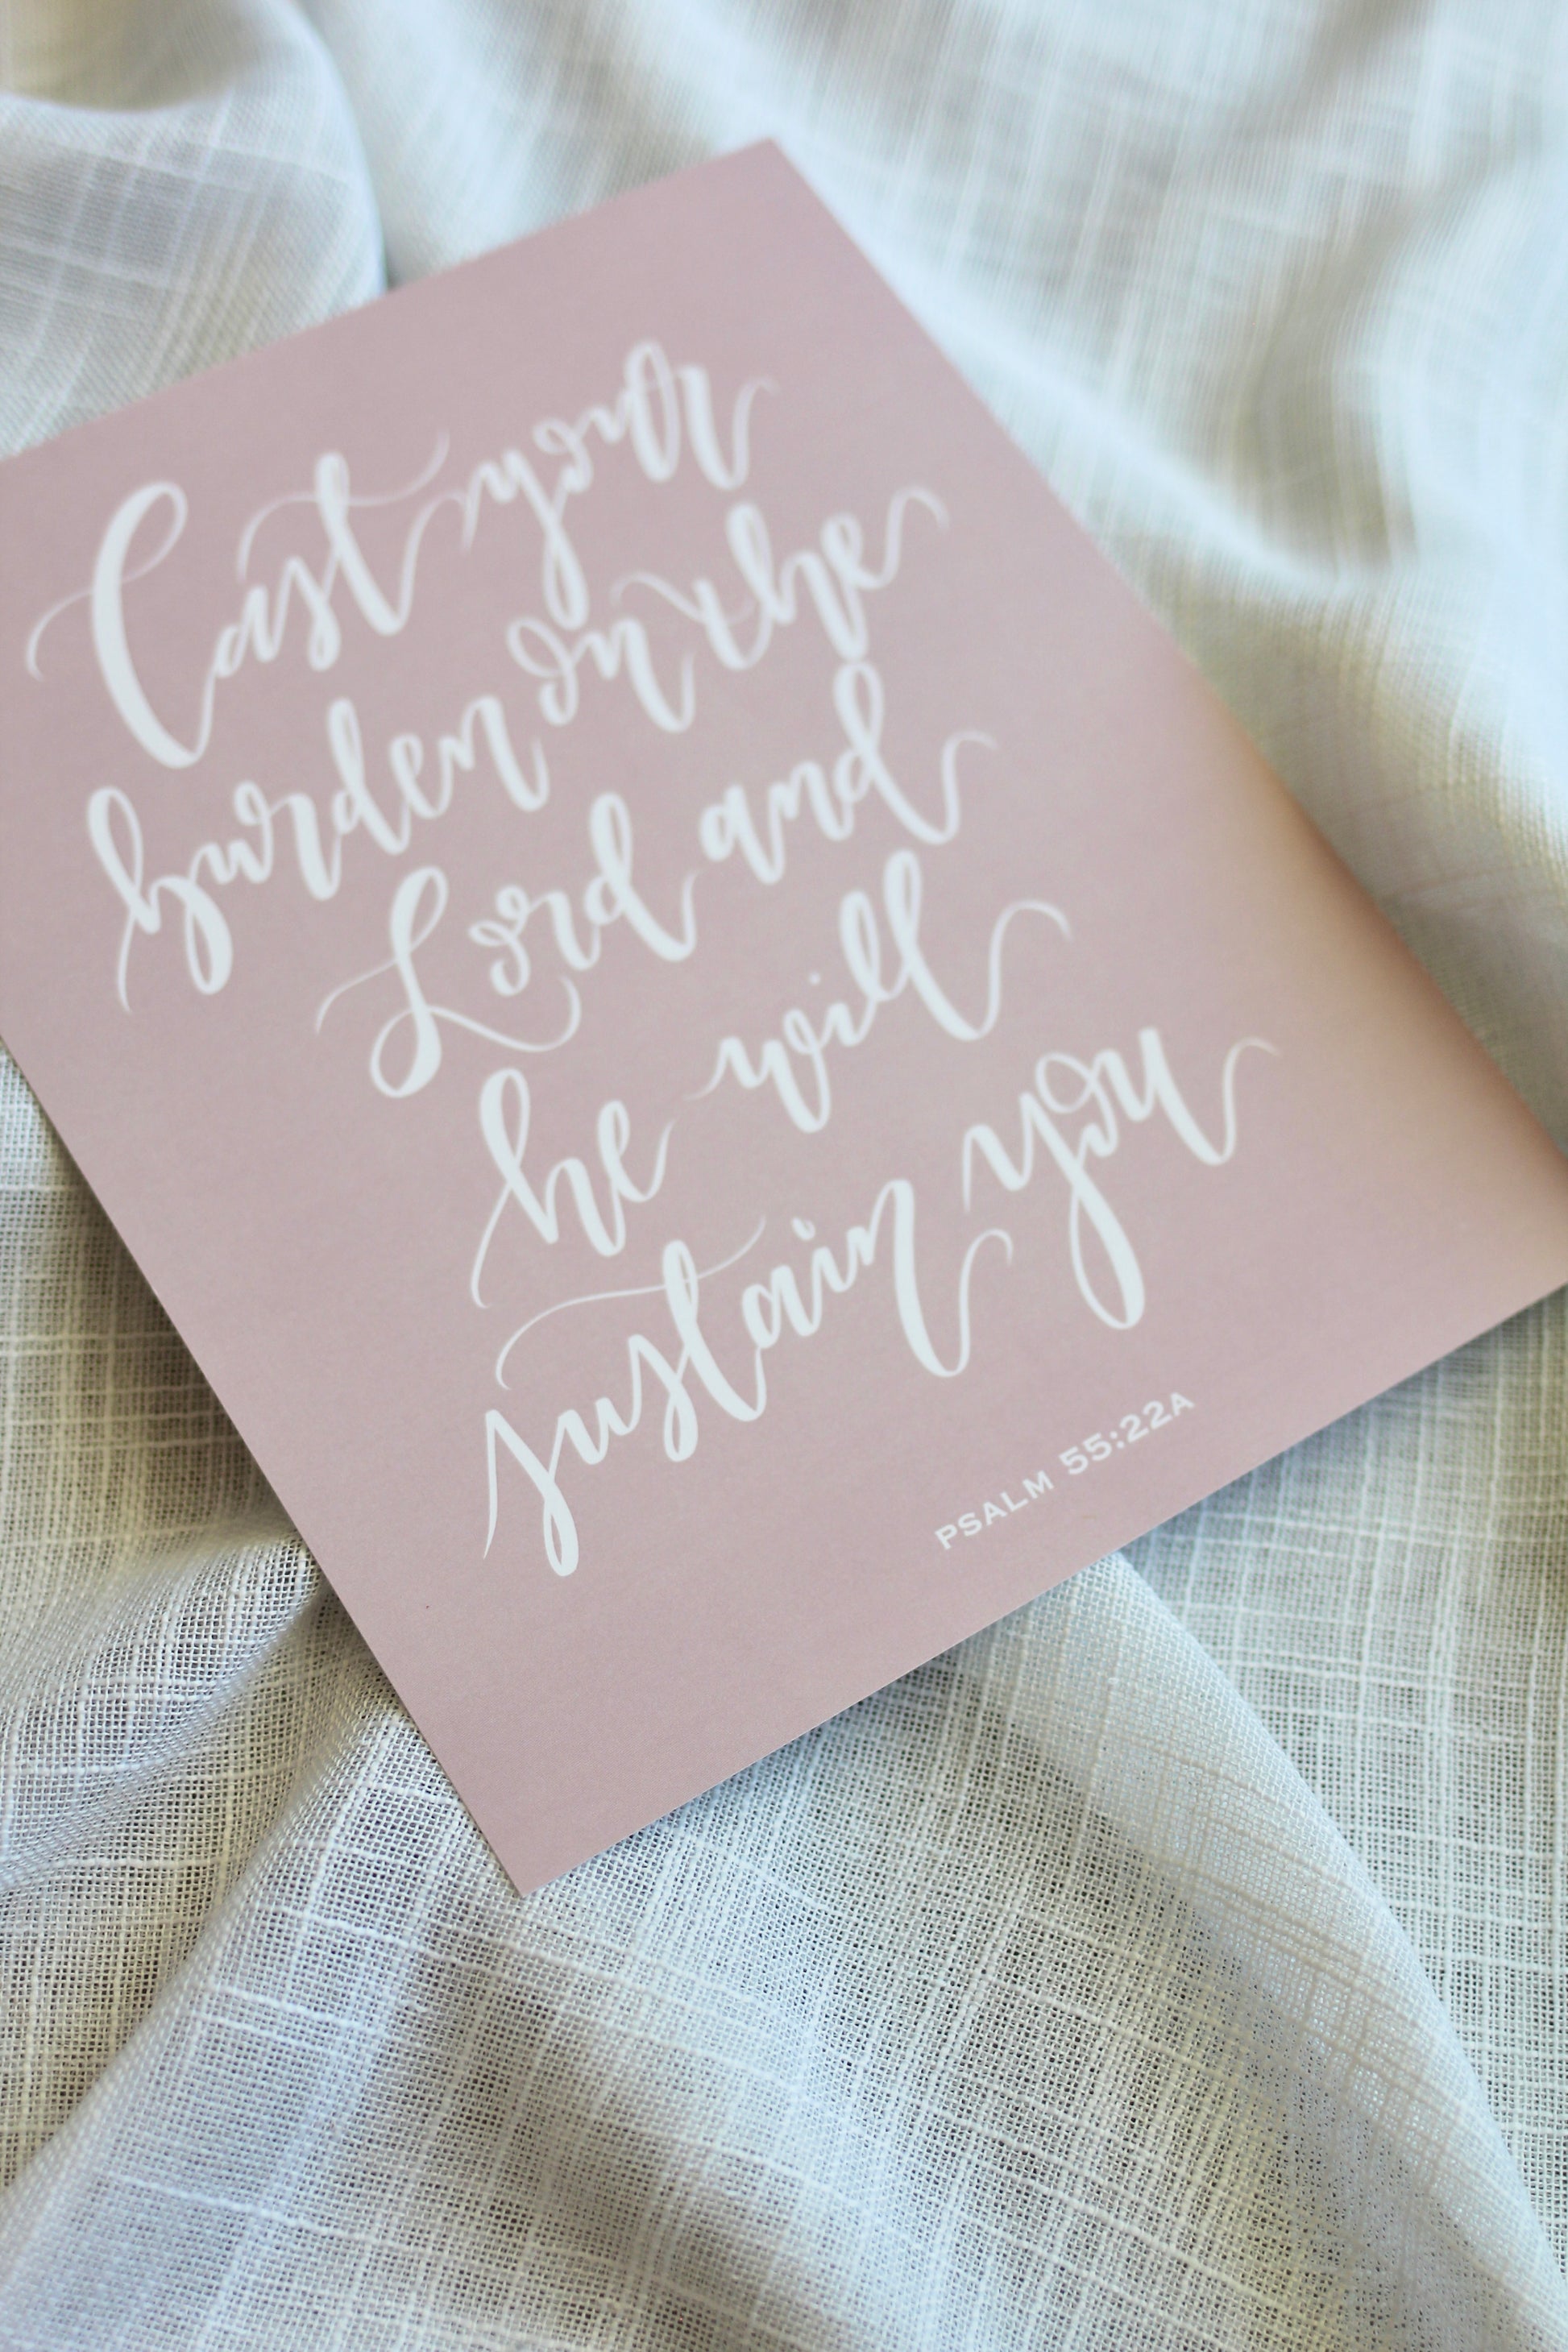 Cast your
burden on the
Lord and
he will
sustain you
PSALM 55:22A